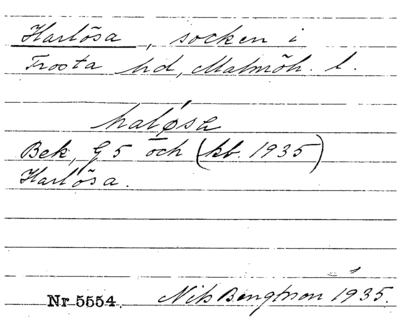 Harlösa, socken i
Trosta hd, Malmöh. l.
haløsa
Bek, G 5 och (kb. 1935)
Harlösa.
Nr 5554. Nils Bengtsson 1935.